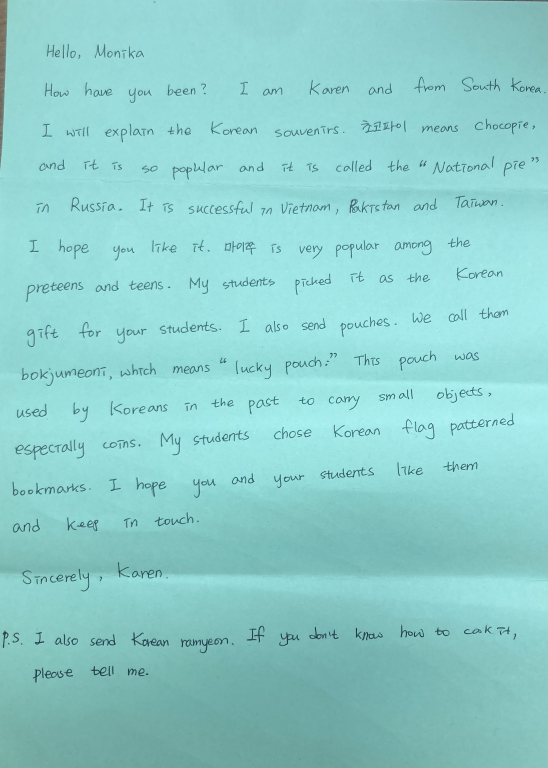 Hello, Monika
How have you been? I am Karen and from South Korea.
I will explain the Korean souvenirs. 초코파이 means chocopie,
and it is so poplular and it is called the "National pie"
in Russia. It is successful in Vietnam, Pakistan and Taiwan.
I hope you like it. 마이쮸 is very popular among the
preteens and teens. My students picked it as the Korean
gift for your students. I also send pouches. We call them
bokjumeoni, which means "lucky pouch." This pouch was
used by Koreans in the past to carry small objects,
especially coins. My students chose Korean flag patterned
bookmarks. I hope you and your students like them
and keep in touch.
Sincerely, Karen.
P.S. I also send Korean ramyeon. If you don't know how to cok it,
please tell me.